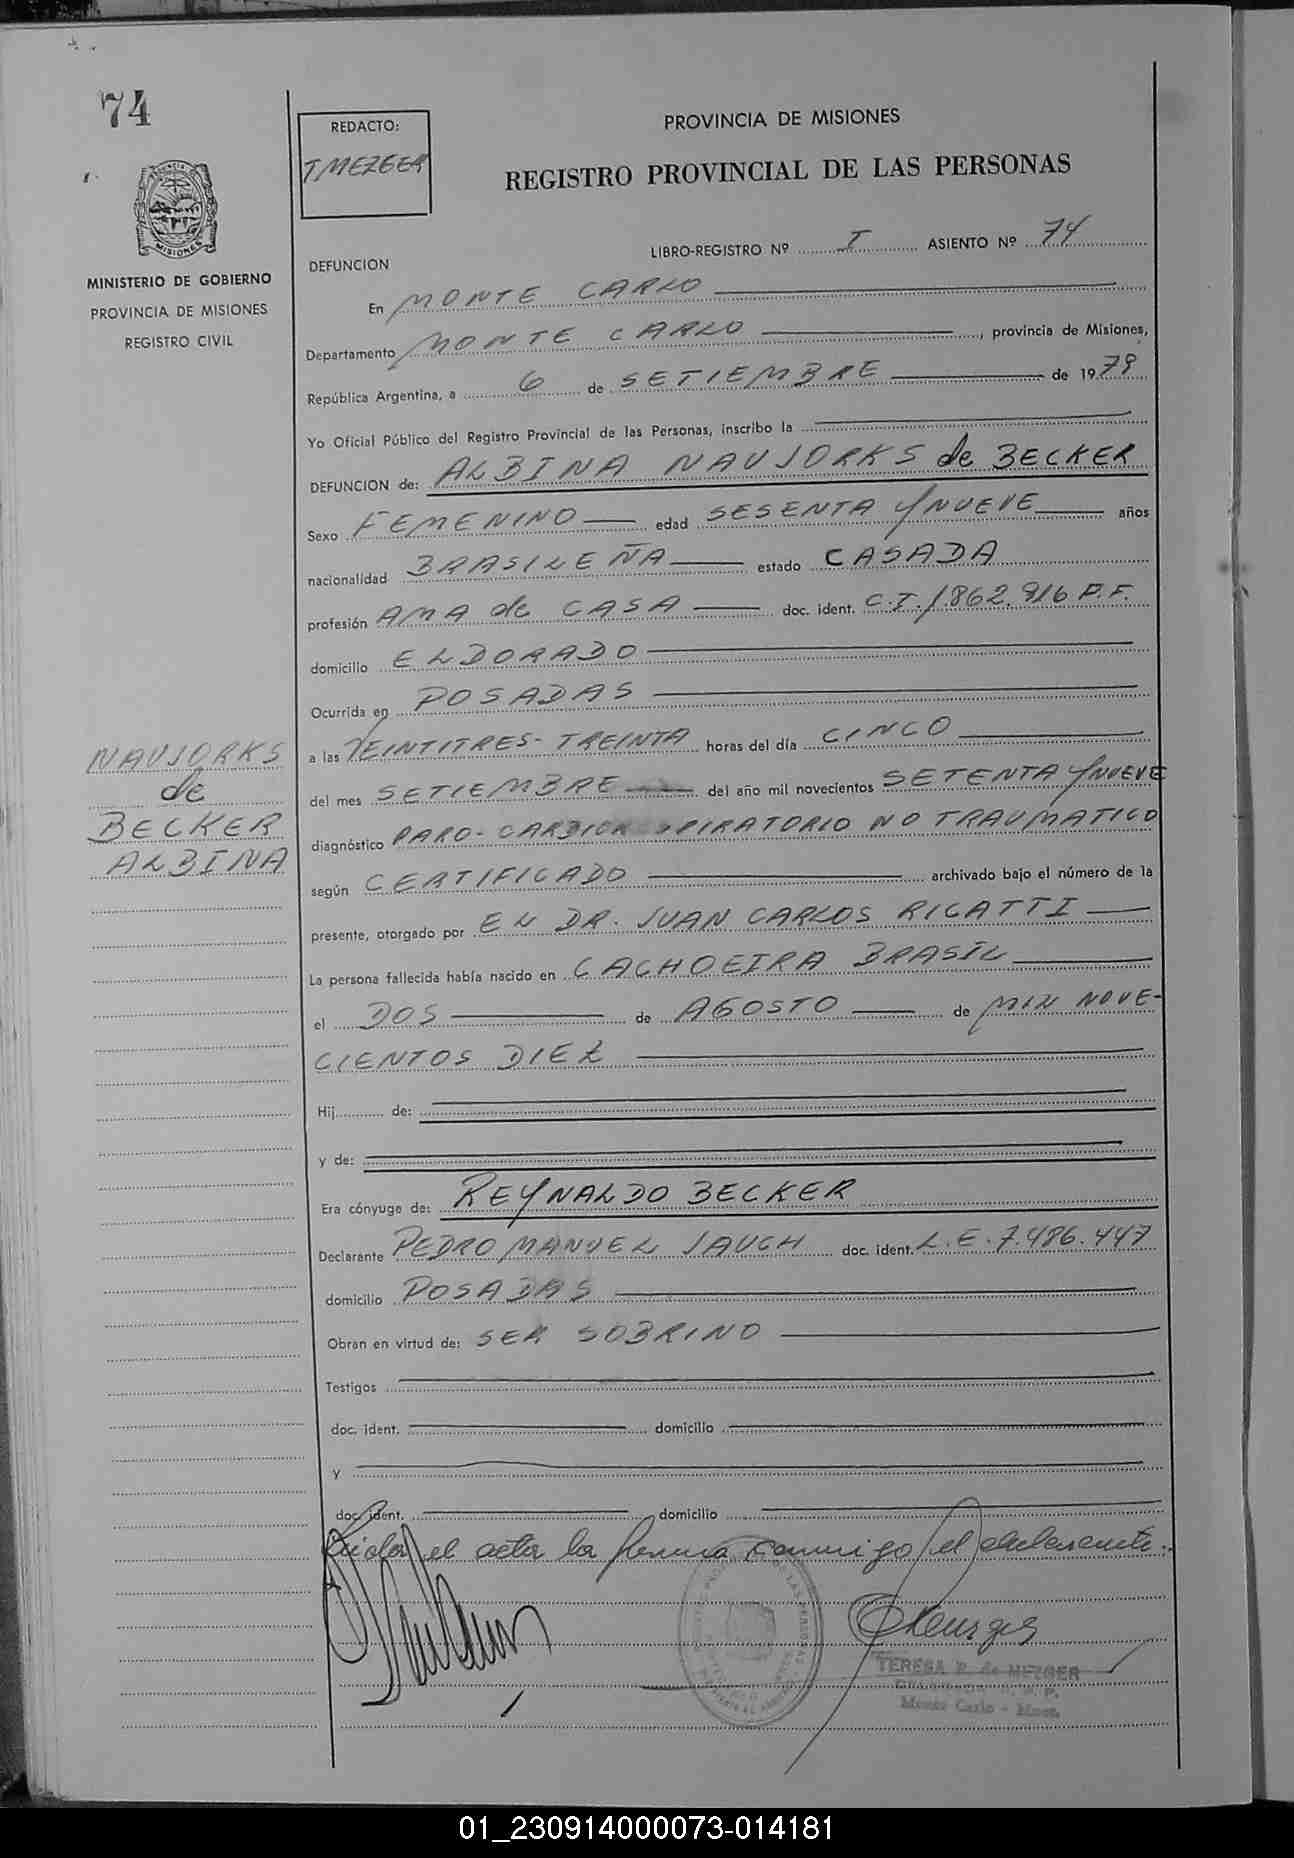 74
MINISTERIO DE GOBIERNO
PROVINCIA DE MISIONES
REGISTRO CIVIL
NAUJORKS
de
BECKER
ALBINA
REDACTO:
T MEZGER
PROVINCIA DE MISIONES
REGISTRO PROVINCIAL DE LAS PERSONAS
LIBRO-REGISTRO Nº I ASIENTO Nº 74
DEFUNCION
En MONTE CARLO
Departamento MONTE CARLO, provincia de Misiones,
República Argentina, a 6 de SETIEMBRE de 1979
Yo Oficial Público del Registro Provincial de las Personas, inscribo la
DEFUNCION de: ALBINA NAUJORKS de BECKER
Sexo FEMENINO edad SESENTA Y NUEVE años
nacionalidad BRASILEÑA estado CASADA
profesión AMA de CASA doc. ident. C.I. 1.862.916 P.F.
domicilio ELDORADO
Ocurrida en POSADAS
a las VEINTITRES-TREINTA horas del día CINCO
del mes SETIEMBRE del año mil novecientos SETENTA Y NUEVE
diagnóstico PARO-CARDIORESPIRATORIO NO TRAUMATICO
según CERTIFICADO archivado bajo el número de la
presente, otorgado por EL DR. JUAN CARLOS RIGATTI
La persona fallecida había nacido en CACHOEIRA BRASIL
el DOS de AGOSTO de MIL NOVE-
CIENTOS DIEZ
Hij de:
y de:
Era cónyuge de: REYNALDO BECKER
Declarante PEDRO MANUEL JAUCH doc. ident. L.E. 7.486.447
domicilio POSADAS
Obran en virtud de: SER SOBRINO
Testigos
doc. ident. domicilio
y
doc. ident. domicilio
Leida el acta la firma conmigo el declarante.
TERESA P. de MEZGER
Monte Carlo - Mnes.
01_230914000073-014181